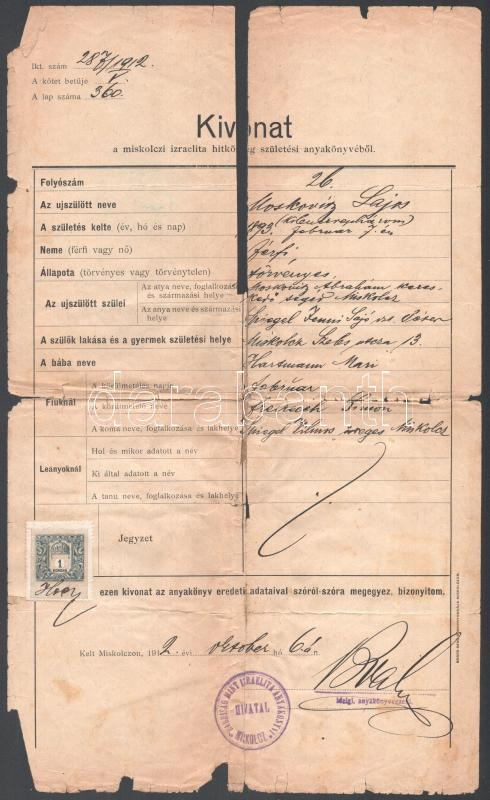 Ikt. szám 287/1912.
A kötet betüje V.
A lap száma 360.
Kivonat
a miskolczi izraelita hitközség születési anyakönyvéből.
Folyószám 26.
Az ujszülött neve Moskovitz Lajos
A születés kelte (év, hó és nap) 893. Február 7.-én
Neme (férfi vagy nő) Férfi
Állapota (törvényes vagy törvénytelen) törvényes.
Az ujszülött szülei
Az atya neve, foglalkozása és származási helye Moskovitz Ábrahám keres-
kedő segéd Miskolcz
Az anya neve és származási helye Spiegel Fenni
A szülők lakása és a gyermek születési helye Miskolcz utcza 13.
A bába neve Hartmann Mari
Fiuknál
A körülmetélés napja Február
A körülmetélő neve Simon
A koma neve, foglalkozása és lakhelye Spiegel Vilmos Miskolcz
Leányoknál
Hol és mikor adatott a név
Ki által adatott a név
A tanu neve, foglalkozása és lakhelye
Jegyzet
1
KORONA
Hogy ezen kivonat az anyakönyv eredeti adataival szóról-szóra megegyez, bizonyitom.
Kelt Miskolczon, 1912. évi oktober hó 6án.
IZRAELITA ANYAKÖNYVI
HIVATAL
MISKOLCZ
darabanth